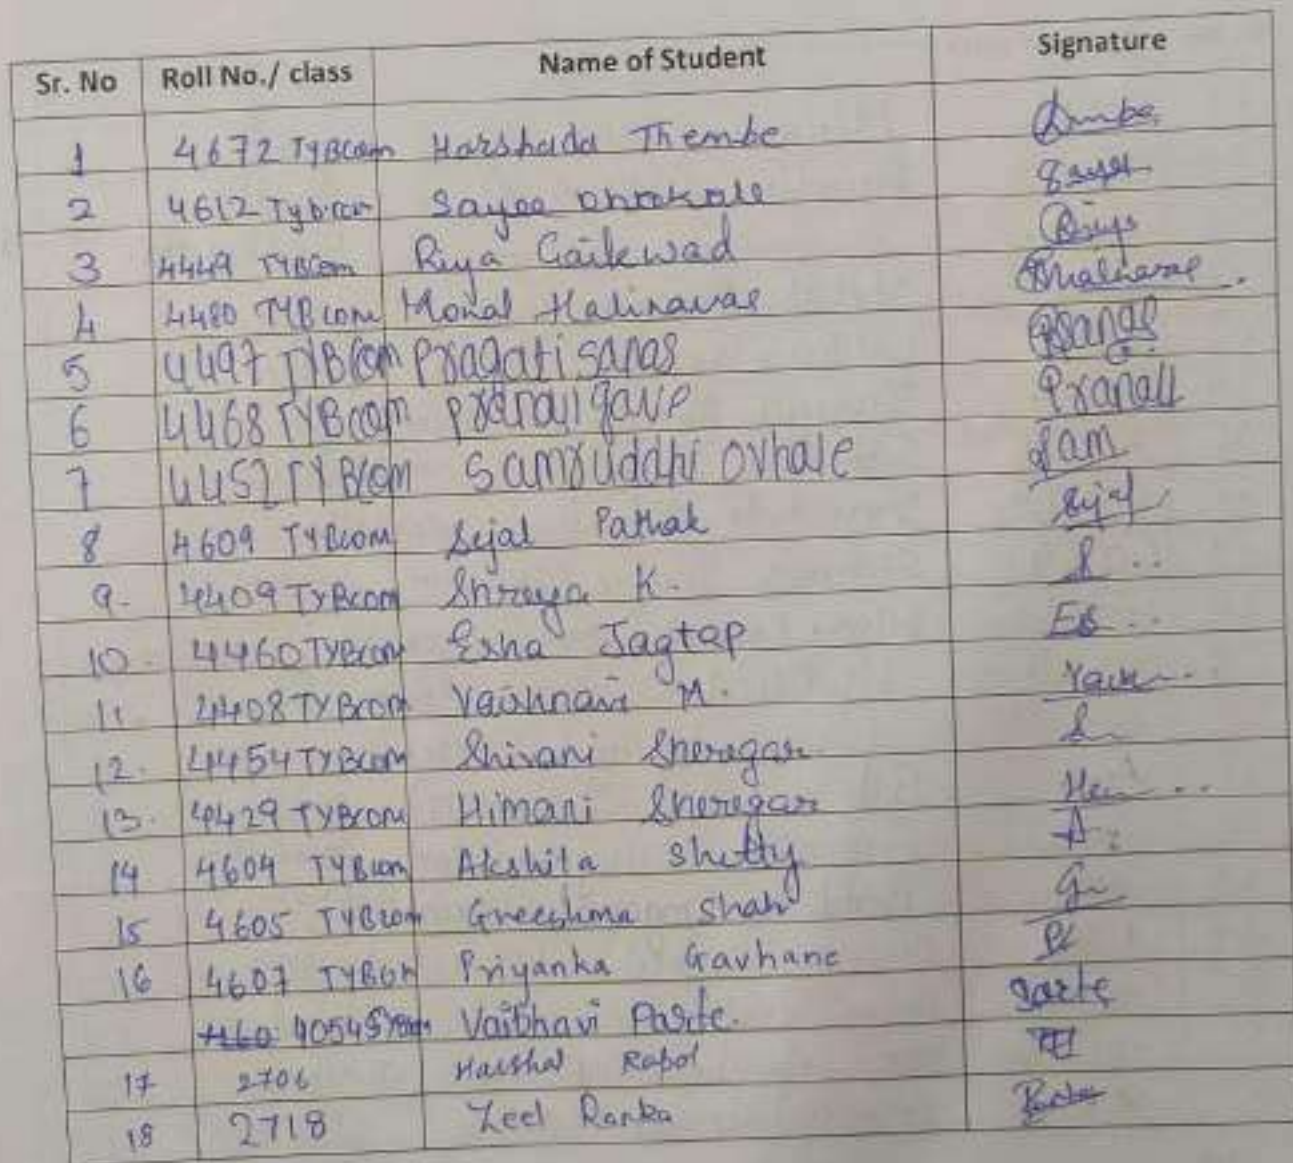 Sr. No Roll No./ class Name of Student Signature
1 4672 TYBCom Harshada Thembe
2 4612 Tybcom Sayee
3 4449 TYBCom Riya Gaikwad Riya
4 4480 TYBCom Monal Halnavar
5 4497 TYBCom Pragati Sanas PSanas
6 4468 TYBCom Pranali gave Pranali
7 4452 TYBCom Samruddhi Ovhale Sam
8 4609 TYBCOM Sejal Pathak Sejal
9. 4409 TYBCOM Shreya K.
10. 4460 TYBCOM Esha Jagtap
11. 4408 TYBCOM Vaishnavi M.
12. 4454 TYBCOM Shivani Sheregar
13. 4429 TYBCOM Himani Sheregar
14 4604 TYBCom Akshita Shetty
15 4605 TYBCom Greeshma Shah
16 4607 TYBCom Priyanka Gavhane
4054 SYBCom Vaibhavi Parte. Parte
17 2706 Harshal Rapol
18 2718 Zeel Ranka